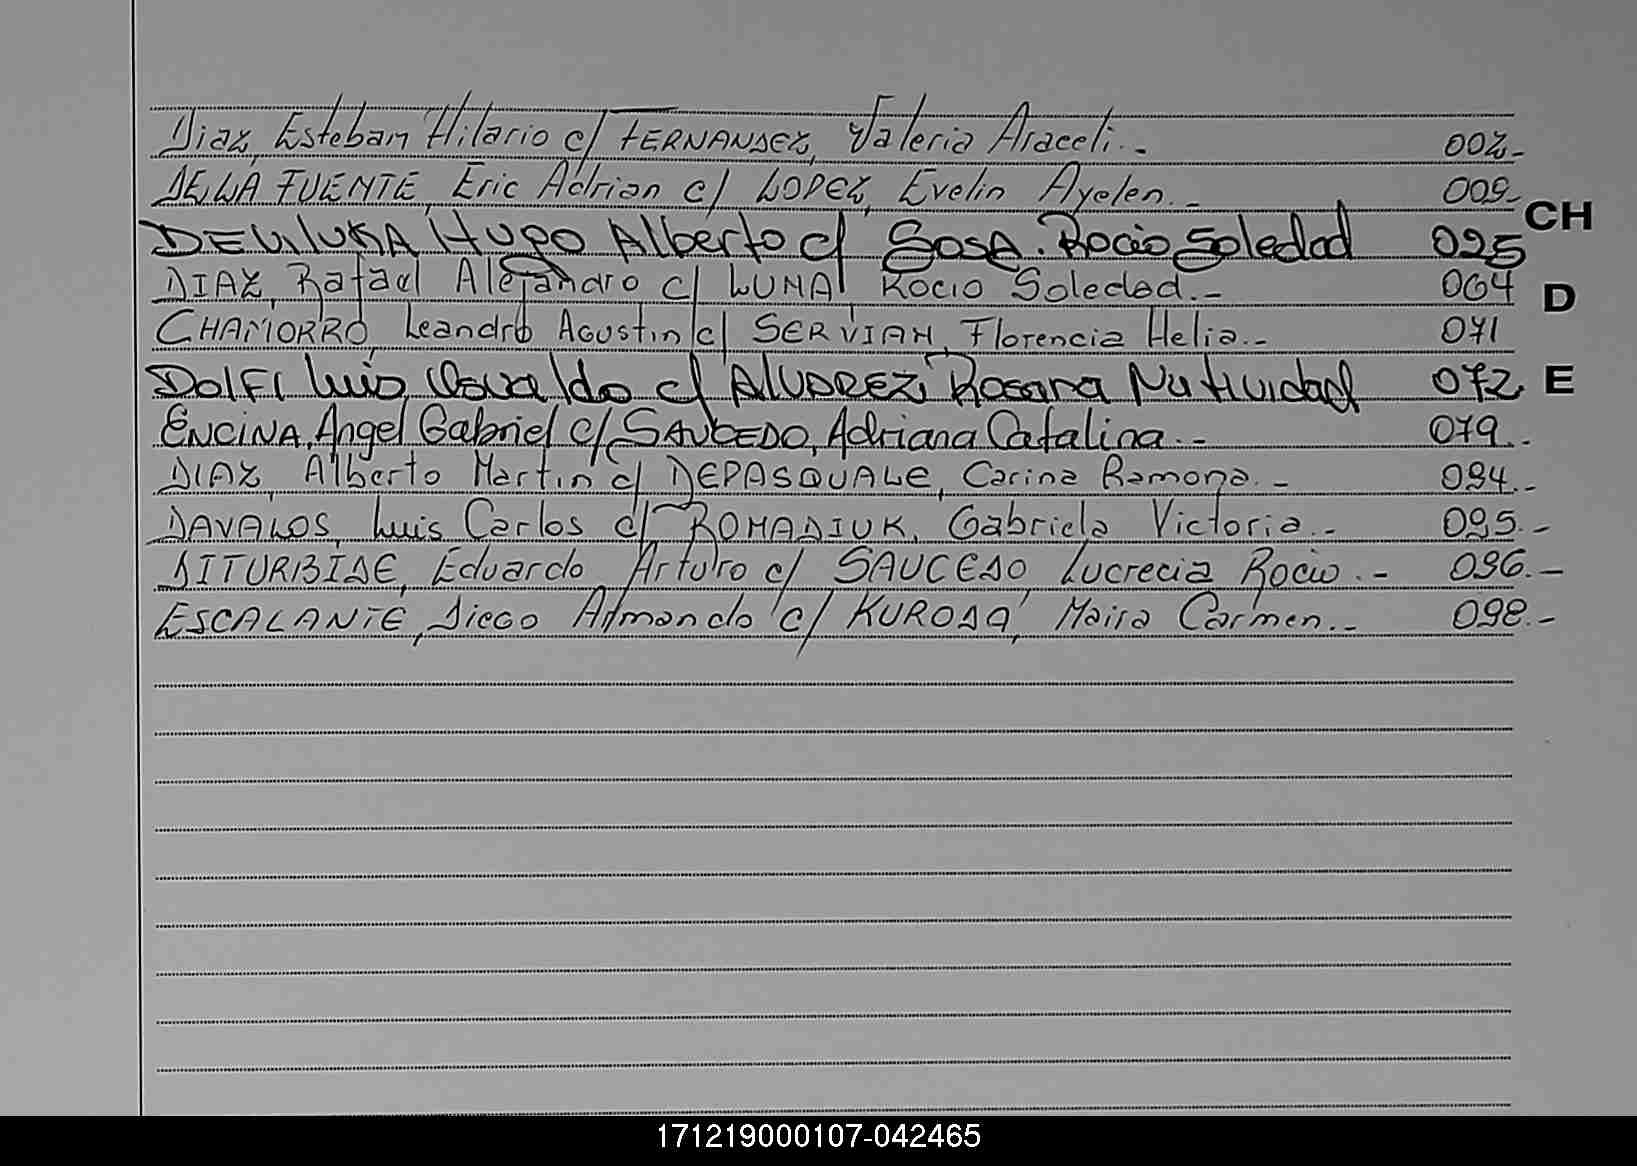 Diaz, Esteban Hilario c/ FERNANDEZ, Valeria Araceli.- 002.-
DE LA FUENTE, Eric Adrian c/ LOPEZ, Evelin Ayelen.- 009.-
CH
Hugo Alberto c/ SOSA. Rocio Soledad 025
DIAZ, Rafael Alejandro c/ LUNA, Rocio Soledad.- 064
D
CHAMORRO, Leandro Agustin c/ SERVIAN, Florencia Helia.- 071
DOLFI Luis Osvaldo c/ ALVAREZ, Rosana Natividad 072
E
ENCINA, Angel Gabriel c/ SAUCEDO, Adriana Catalina.- 079.-
DIAZ, Alberto Martin c/ DEPASQUALE, Carina Ramona.- 094.-
DAVALOS, Luis Carlos c/ ROMADIUK, Gabriela Victoria.- 095.-
DITURBIDE, Eduardo Arturo c/ SAUCEDO Lucrecia Rocio.- 096.-
ESCALANTE, Diego Armando c/ KURODA, Maira Carmen.- 098.-
171219000107-042465